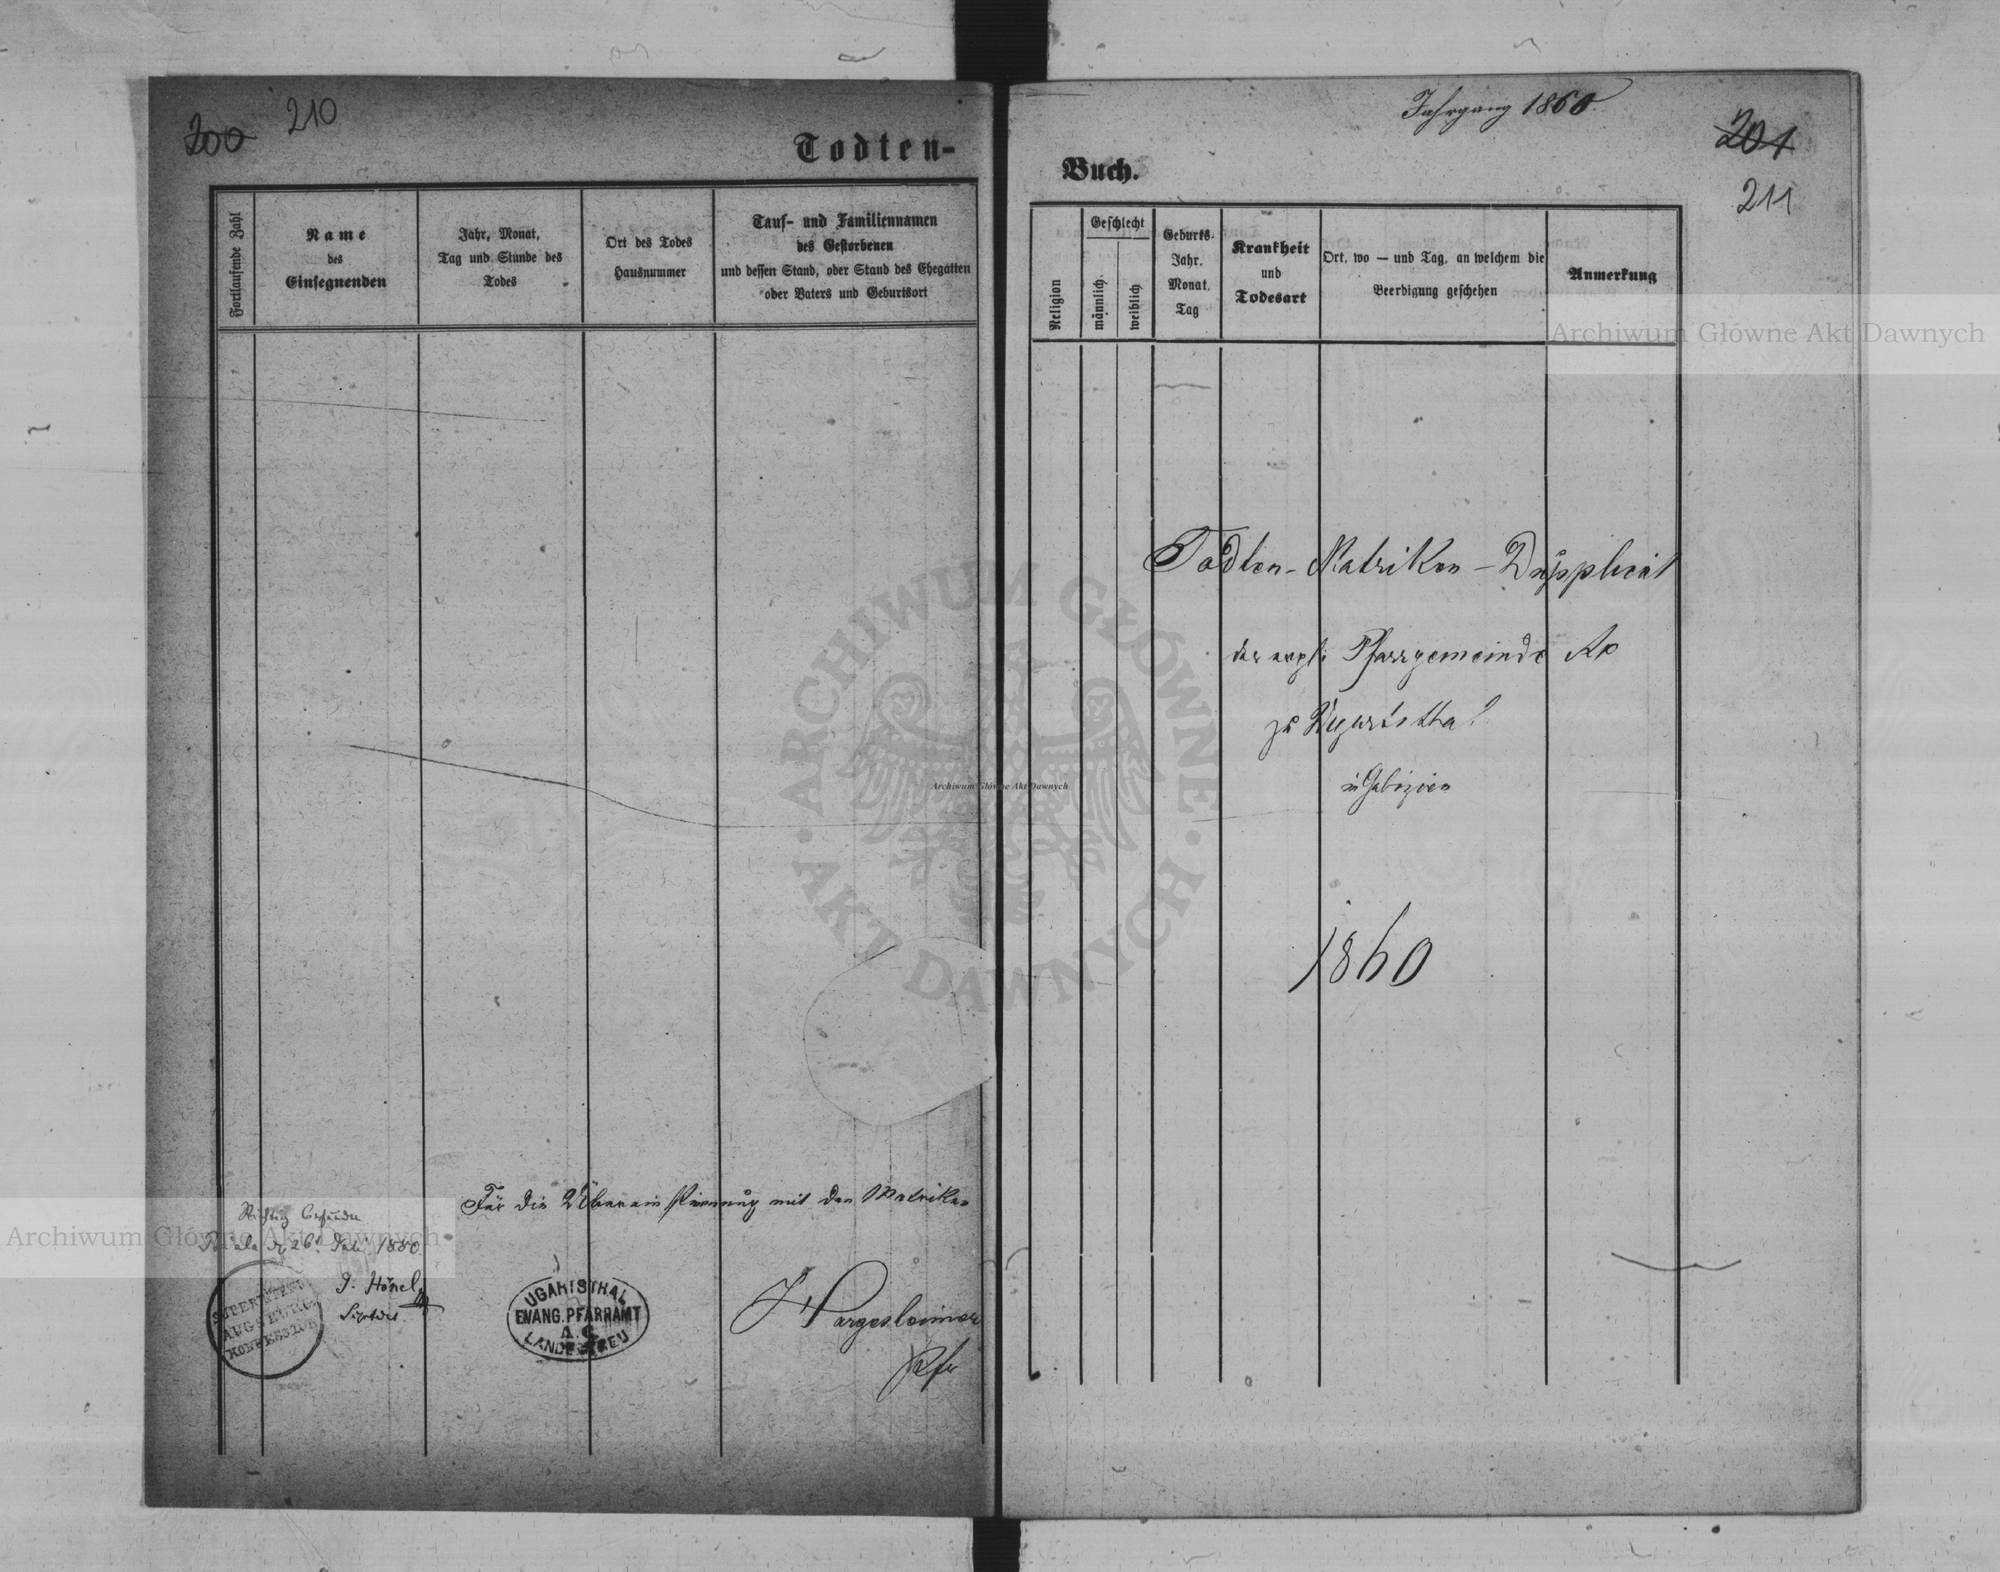 200
210
Todten-
Fortlaufende Zahl
Name
des
Einsegnenden
Jahr, Monat,
Tag und Stunde des
Todes
Ort des Todes
Hausnummer
Tauf- und Familiennamen
des Gestorbenen
und dessen Stand, oder Stand des Ehegatten
oder Vaters und Geburtsort
Für die Übereinstimmung mit den Matriken
Richtig befunden
26. Juli 1880
J. Hönel
SUPERINTEND
AUGSBURG.
KONFESSION
UGARTSTHAL
EVANG. PFARRAMT
A. C.
LANDESTREU
Pfr
Jahrgang 1860.
201
211
Buch.
Religion
Geschlecht
männlich
weiblich
Geburts-
Jahr.
Monat.
Tag
Krankheit
und
Todesart
Ort, wo — und Tag, an welchem die
Beerdigung geschehen
Anmerkung
Todten-Matriken-Duplicat
der evgl: Pfarrgemeinde AC
zu Ugartsthal
in Galizien
1860
Archiwum Główne Akt Dawnych
Archiwum Główne Akt Dawnych
Archiwum Główne Akt Dawnych
ARCHIWUM GŁÓWNE · AKT DAWNYCH ·